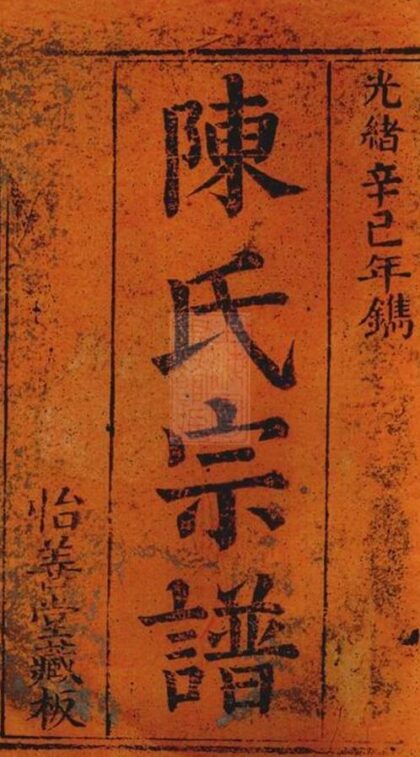 光緒辛巳年鐫
陳氏宗譜
怡善堂藏板